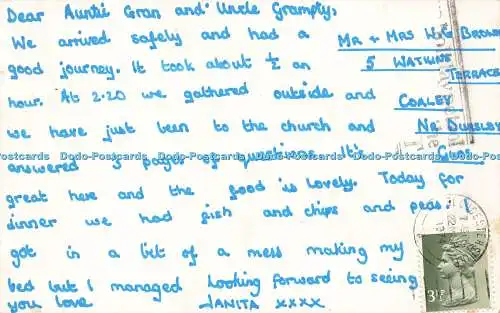 Dear Auntie Gran and Uncle Grampty,
We arrived safely and had a
good journey. It took about ½ an
hour. At 2.20 we gathered outside and
we have just been to the church and
answered 3 pages of questions. It's
great here and the food is lovely. Today for
dinner we had fish and chips and peas. I
got in a bit of a mess making my
bed but I managed. Looking forward to seeing
you love JANITA xxxx
MR + MRS W.G BROWN
5 WATKINS
TERRACE
COALEY
NR DURSLEY
GLOS
Dodo-Postcards Dodo-Postcards Dodo-Postcards Dodo-Postcards Dodo-Postcards Dodo-Postcards
3½P